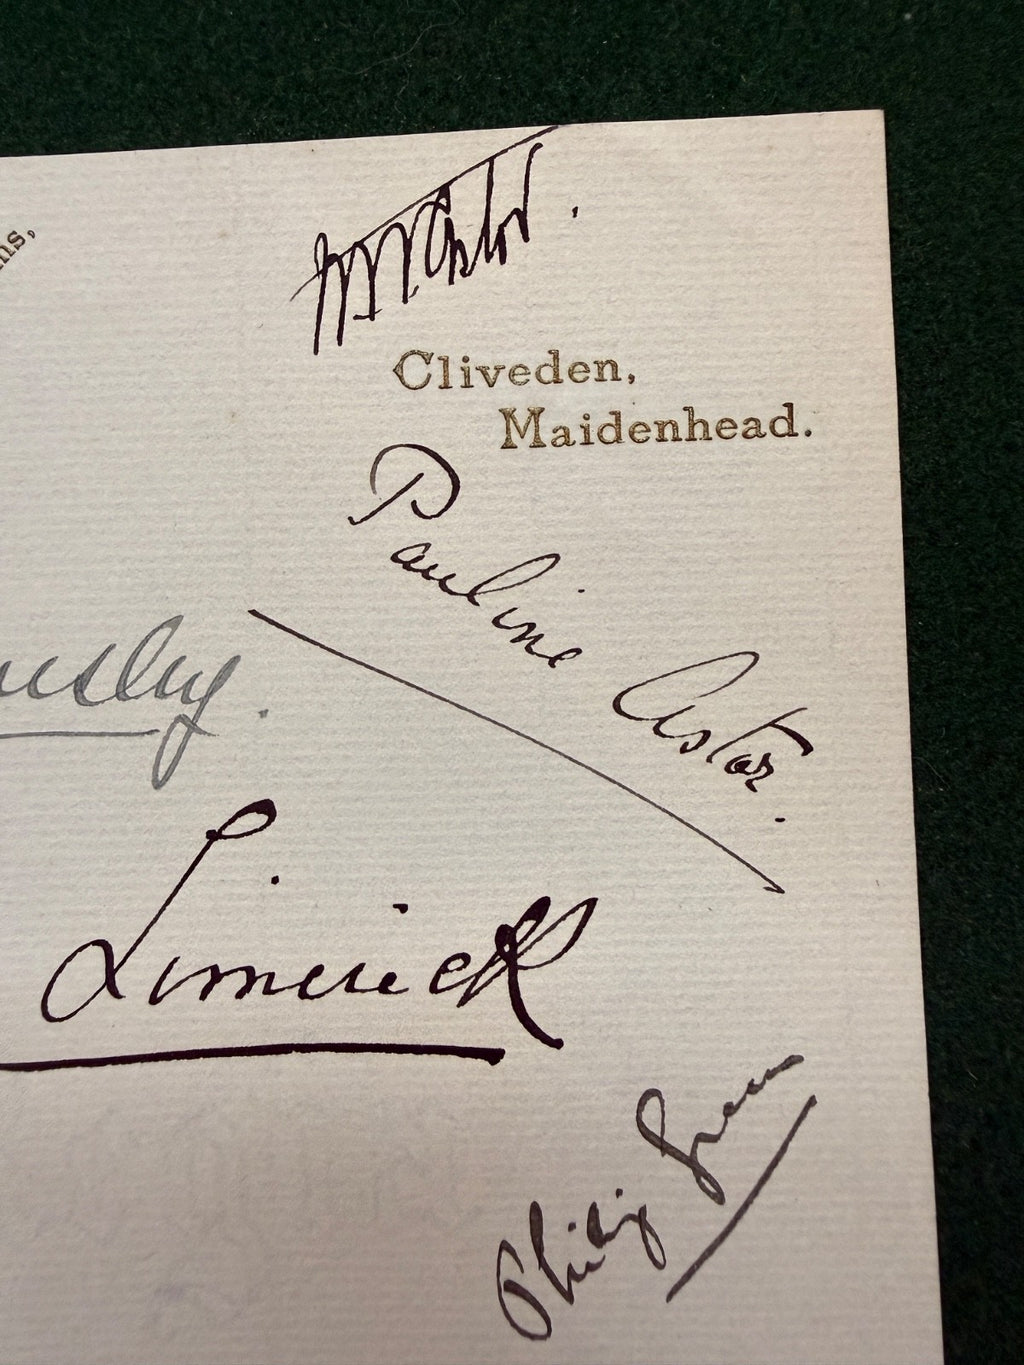 ns,
W W Astor.
Cliveden,
Maidenhead.
Pauline Astor.
Limerick
Philip Green